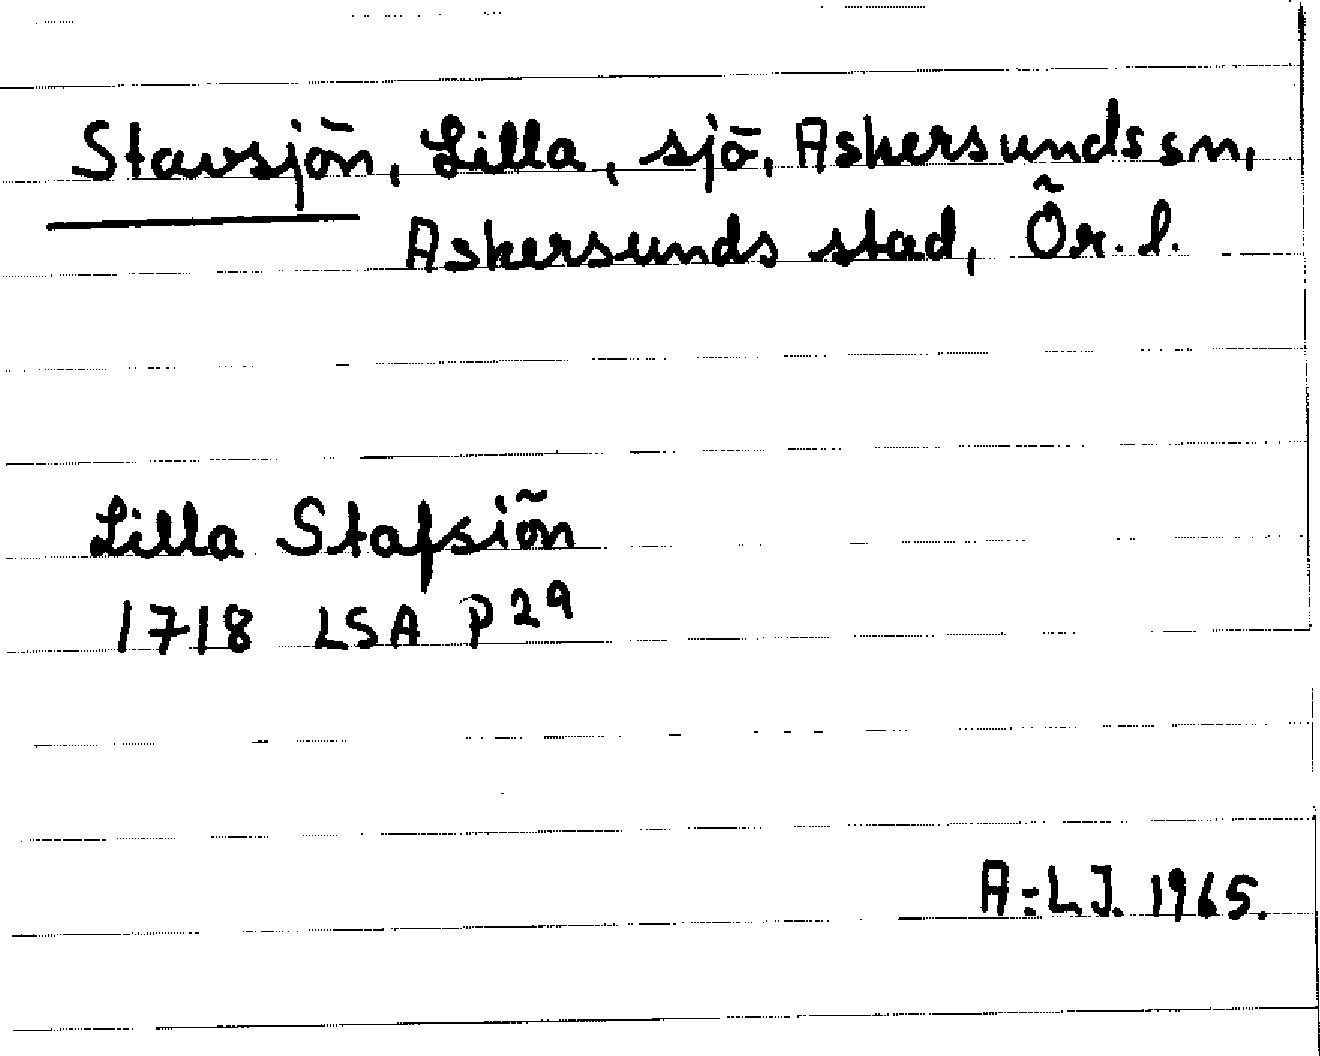 Stavsjön, Lilla, sjö, Askersunds sn,
Askersunds stad, Ör. l.
Lilla Stafsiön
1718 LSA P 29
A-L.J. 1965.